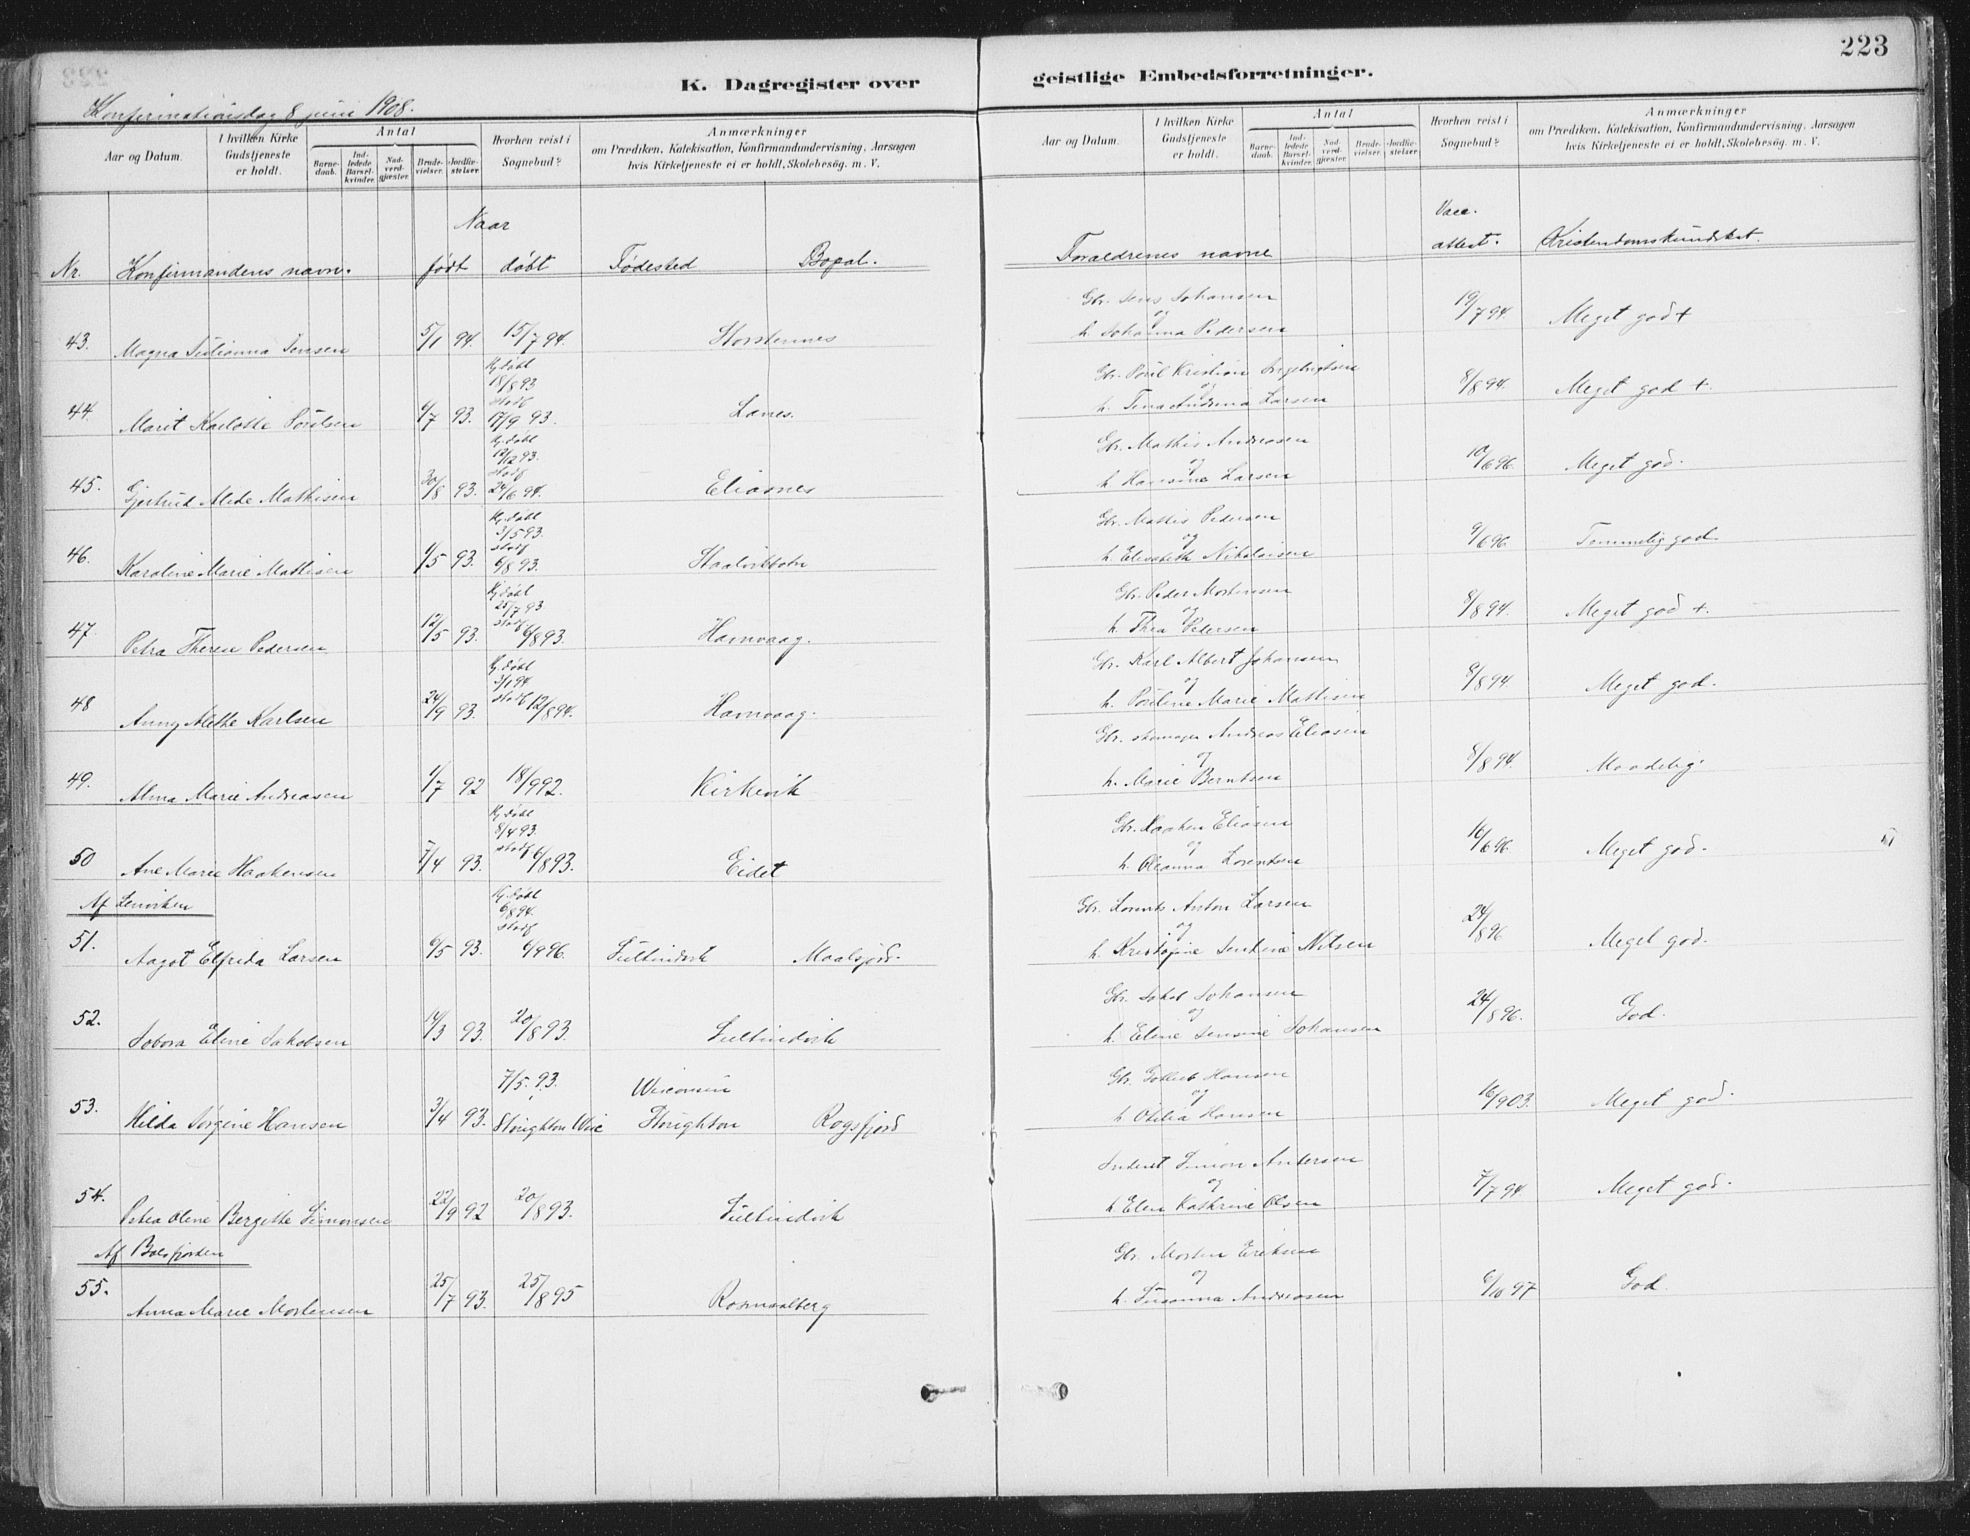 223
K. Dagregister over geistlige Embedsforretninger.
Konfirmationsdag 8 juni 1908.
Aar og Datum. I hvilken Kirke Gudstjeneste er holdt. Antal Barnedaab. Indledede Barselkvinder. Nadverdgjæster. Brudevielser. Jordfæstelser. Hvorhen reist i Sognebud? Anmærkninger om Prædiken, Katekisation, Konfirmandundervisning, Aarsagen hvis Kirketjeneste ei er holdt, Skolebesøg. m. V.
Aar og Datum. I hvilken Kirke Gudstjeneste er holdt. Antal Barnedaab. Indledede Barselkvinder. Nadverdgjæster. Brudevielser. Jordfæstelser. Hvorhen reist i Sognebud? Anmærkninger om Prædiken, Katekisation, Konfirmandundervisning, Aarsagen hvis Kirketjeneste ei er holdt, Skolebesøg. m. V.
Naar
Nr. Konfirmandens navn. født døbt Fødested Bopal.
Foraldrenes navne Vacc. attest. Kristendomskundskab.
Gbr. Jens Johansen
og
43. Magna Julianna Jensen 5/1 94. 15/7 94. Storstennes h. Johanna Pedersen 19/7 94 Meget god +
Hj. døbt
18/8 93
stadf
Gbr. Poul Kristian Ingebrigtsen
og
44. Marit Karlotte Poulsen 4/7 93. 17/9 93. Lanes. h. Tina Andrina Larsen 8/8 94. Meget god +.
Hj. døbt
12/12 93.
stadf
Gbr. Mathis Andreasen
og
45. Gjertrud Alide Mathisen 30/8 93. 24/6 94. Eliasnes h. Hansine Larsen 10/6 96. Meget god.
Hj. døbt
3/5 93.
stadf
Gbr. Mattis Pedersen
og
46. Karoline Marie Mattisen 1/5 93. 6/8 93. Staalvikbotn h. Elisabeth Nikolaisen 9/6 96. Temmelig god.
Hj. døbt
25/7 93
Gbr. Peder Mortensen
og
47. Petra Therese Pedersen 12/5 93. stadf 6/8 93. Havnvaag. h. Thea Petersen 8/8 94. Meget god +.
Hj. døbt
3/1 94
Gbr. Karl Albert Johansen
og
48 Anny Alethe Karlsen 24/9 93. stadf 12/8 94. Havnvaag. h. Pauline Marie Mattisen 8/8 94. Meget god.
Gbr. skomager Andreas Eliasen
og
49. Alma Marie Andreasen 1/7 92 18/9 92. Kirkevik h. Marie Berntsen 8/8 94. Maadelig.
Hj. døbt
8/4 93.
Gbr. Haaken Eliasen
og
50 Ane Marie Haakensen 7/4 93. stadf 6/8 93. Eidet h. Oleanna Lorentsen 10/6 96. Meget god.
Af Lenviken
Hj. døbt
6/8 94.
stadf
Gbr. Lorents Anton Larsen
og
51. Aagot Elfrida Larsen 6/5 93. 6/9 96. Sultindvik Maalsjord. h. Kristofine Jentine Nilsen 24/8 96 Meget god.
Gbr. Jakob Johansen
og
52. Jobora Eline Jakobsen 14/3 93. 20/8 93. Sultindvik h. Eline Jensine Johansen 24/8 96. God.
7/5. 93. Wisconsin
Gbr. Gotlieb Hansen
og
53. Hilda Jørgine Hansen 3/4 93. Stoughton Wisc Stoughton Rogsfjord h. Otilia Hansen 16/9 03. Meget god.
Inderst Simon Andersen
og
54. Petra Oline Bergitte Simonsen 22/9 92 20/8 93. Sultindvik h. Elen Kathrine Olsen 7/7 94. Meget god.
Af Balsfjorden
Gbr. Morten Eriksen
og
55. Anna Marie Mortensen 25/7 93. 25/8 95 Rosmaalberg h. Susanna Andreasen 6/10 97 God.